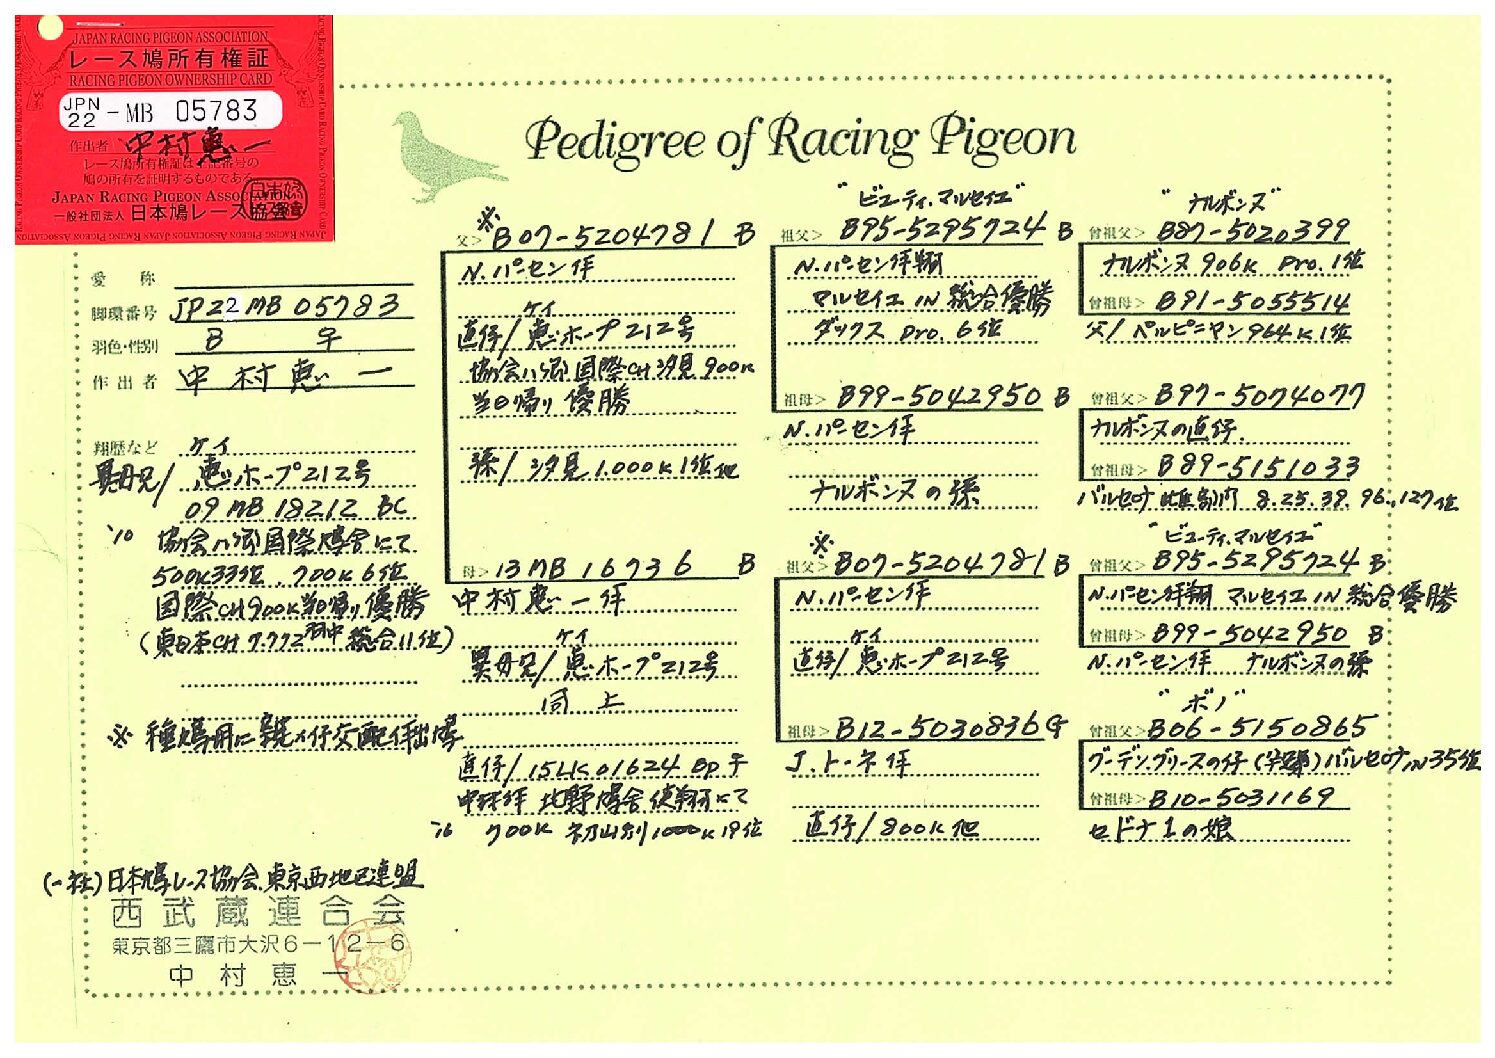 JAPAN RACING PIGEON ASSOCIATION
レース鳩所有権証
RACING PIGEON OWNERSHIP CARD
JPN 22 -MB 05783
作出者 中村恵一
レース鳩所有権証は上記番号の
鳩の所有を証明するものである。
JAPAN RACING PIGEON ASSOCIATION
一般社団法人 日本鳩レース協会
Pedigree of Racing Pigeon
愛称
脚環番号 JP22MB05783
羽色・性別 B ♀
作出者 中村恵一
翔歴など ケイ
異母兄/恵ホープ212号
09MB18212 BC
'10 協会八郷国際鳩舎にて
500K33位、700K6位
国際CH900K当日帰り優勝
(東日本CH 7.772羽中総合11位)
※ 種鳩用に親×仔交配作出鳩
(一社)日本鳩レース協会.東京西地区連盟
西武蔵連合会
東京都三鷹市大沢6-12-6
中村恵一
※
父> B07-5204781 B
N.パーセン作
ケイ
直仔/恵ホープ212号
協会八郷国際CH汐見900K
当日帰り優勝
孫/汐見1.000K1位他
母> 13MB16736 B
中村恵一作
ケイ
異母兄/恵ホープ212号
同上
直仔/15LK01624 BP ♀
中村作 北野鳩舎使翔にて
'16 700K
"ビューティ.マルセイエ"
祖父> B95-5295724 B
N.パーセン作翔
マルセイエIN総合優勝
ダックス Pro.6位
祖母> B99-5042950 B
N.パーセン作
ナルボンヌの孫
※
祖父> B07-5204781 B
N.パーセン作
ケイ
直仔/恵ホープ212号
祖母> B12-5030836 G
J.トーネ作
直仔/800K他
"ナルボンヌ"
曾祖父> B87-5020399
ナルボンヌ906K Pro.1位
曾祖母> B91-5055514
父/ペルピニマン964K1位
曾祖父> B97-5074077
ナルボンヌの直仔.
曾祖母> B89-5151033
バルセロナ 8.25.39.96.,127位
"ビューティ.マルセイエ"
曾祖父> B95-5295724 B
N.パーセン作翔 マルセイエIN総合優勝
曾祖母> B99-5042950 B
N.パーセン作 ナルボンヌの孫
"ボノ"
曾祖父> B06-5150865
グーデン.ブリースの仔 バルセロナIN35位
曾祖母> B10-5031169
セドナ1の娘